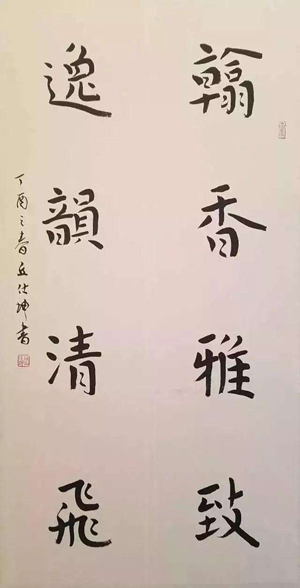 翰香雅致
逸韻清飛
丁酉之春丘仕坤書